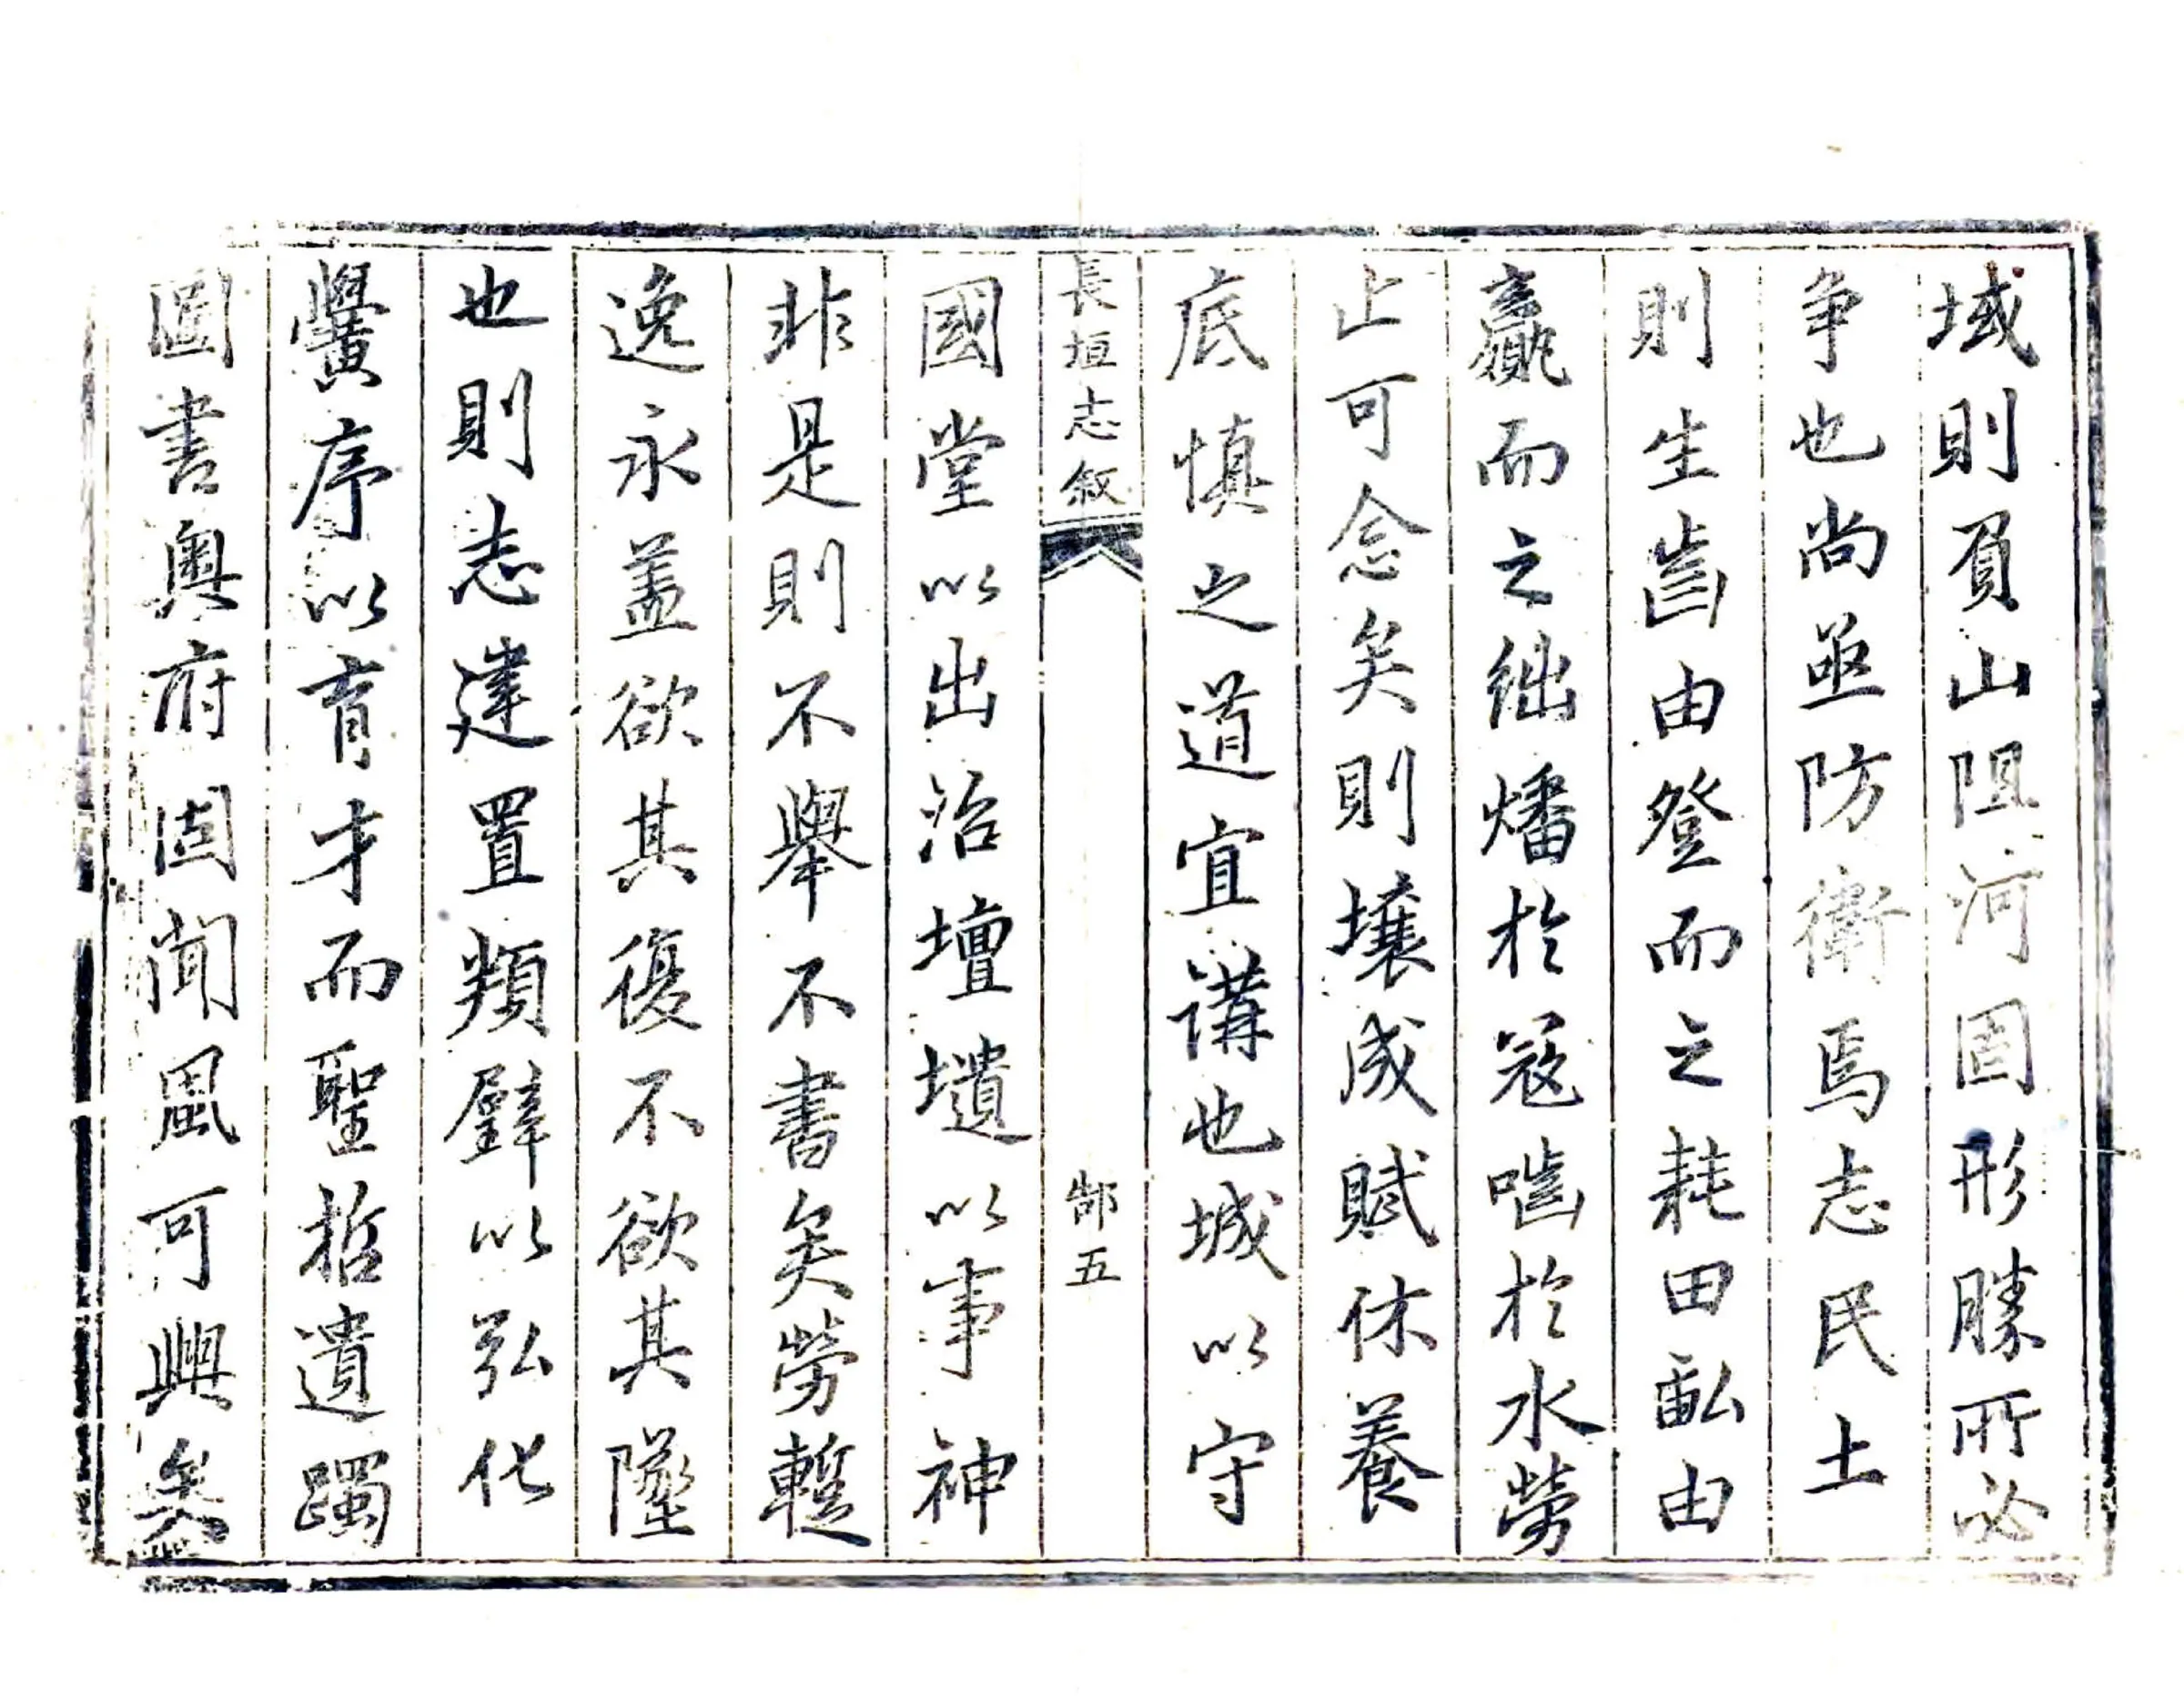 域則負山阻河固形勝所必
争也尚亟防衛焉志民土
則生齒由登而之耗田畝由
贏而之绌燔於寇嚙於水勞
止可念矣則壤成賦休養
底慎之道宜講也城以守
長垣志叙
郜五
國堂以出治壇壝以事神
非是則不舉不書矣勞蹔
逸永盖欲其復不欲其墬
也則志建置頖璧以弘化
黌序以育才而聖哲遺躅
圖書奥府固聞風可興矣